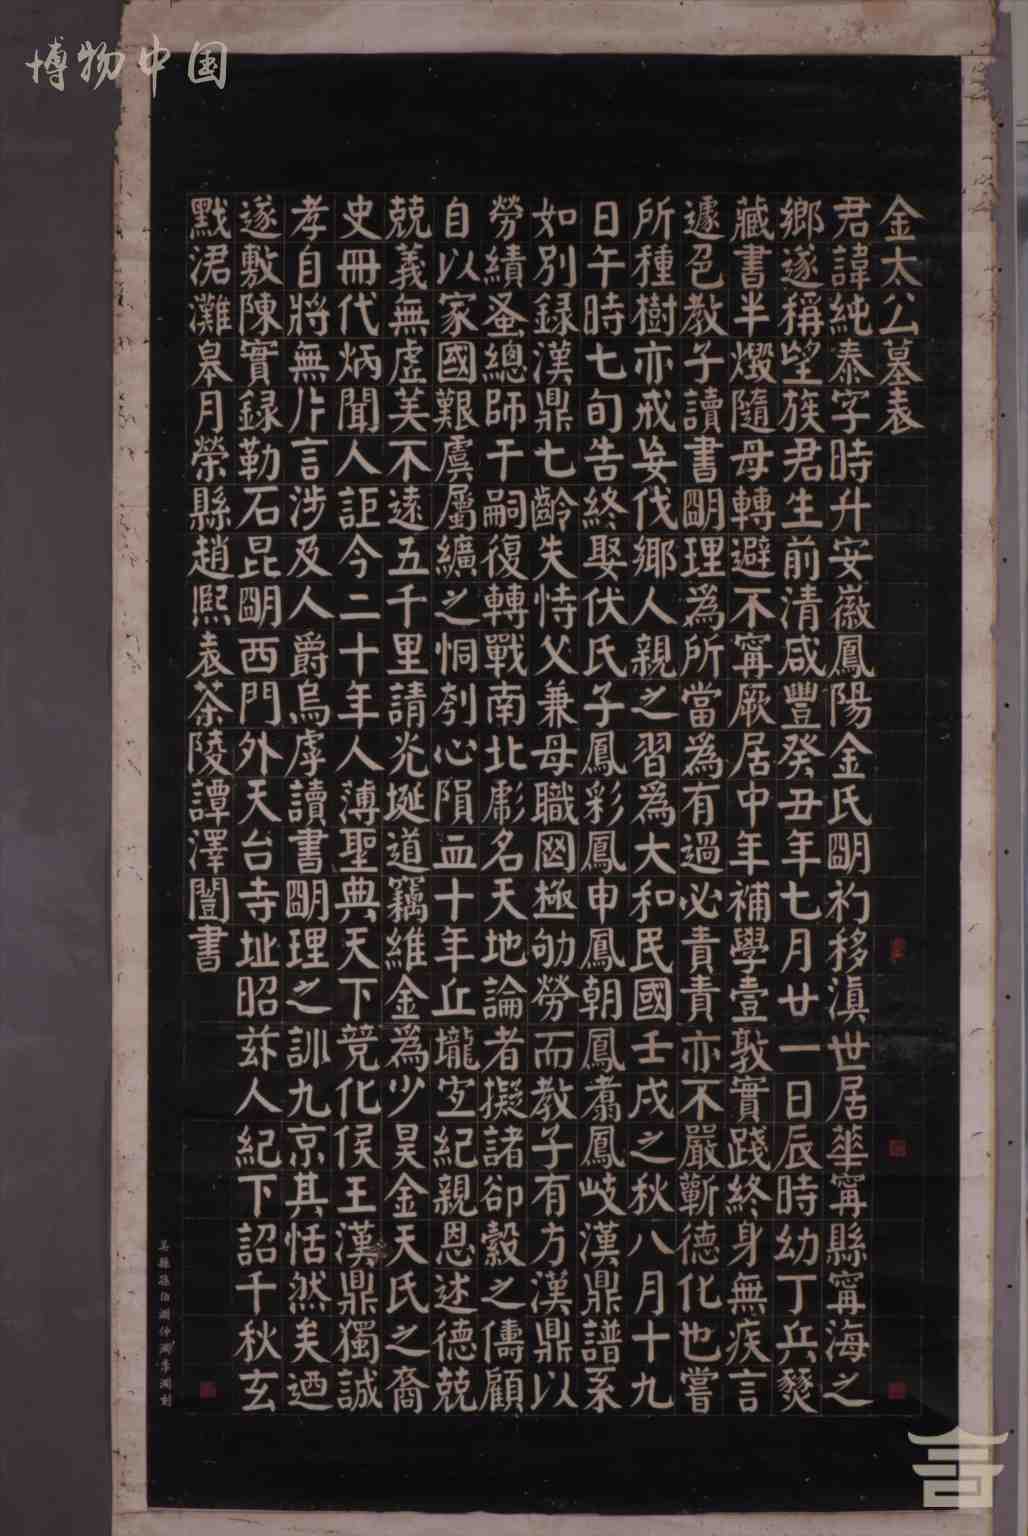 博物中国
金太公墓表
君諱純泰字時升安徽鳳陽金氏朙初移滇世居華甯縣甯海之
鄉遂稱望族君生前清咸豐癸丑年七月廿一日辰時幼丁兵燹
藏書半燬隨母轉避不甯厥居中年補學壹敦實踐終身無疾言
遽色教子讀書朙理為所當為有過必責責亦不嚴蘄德化也嘗
所種樹亦戒妄伐鄉人親之習為大和民國壬戌之秋八月十九
日午時七旬告終娶伏氏子鳳彩鳳申鳳朝鳳翥鳳岐漢鼎譜系
如別録漢鼎七齡失恃父兼母職罔極劬勞而教子有方漢鼎以
勞績蚤總師干嗣復轉戰南北彪名天地論者擬諸郤縠之儔顧
自以家國艱虞屬纊之恫刳心隕血十年丘壠定紀親恩述德兢
兢義無虛美不遠五千里請炎埏道竊維金為少昊金天氏之裔
史冊代炳聞人詎今二十年人薄聖典天下競化侯王漢鼎獨誠
孝自將無片言涉及人爵烏虖讀書朙理之訓九京其恬然矣迺
遂敷陳實録勒石昆朙西門外天台寺址昭茲人紀下詔千秋玄
黓涒灘皋月榮縣趙熙表茶陵譚澤闓書
吳縣孫伯淵仲淵季淵刻